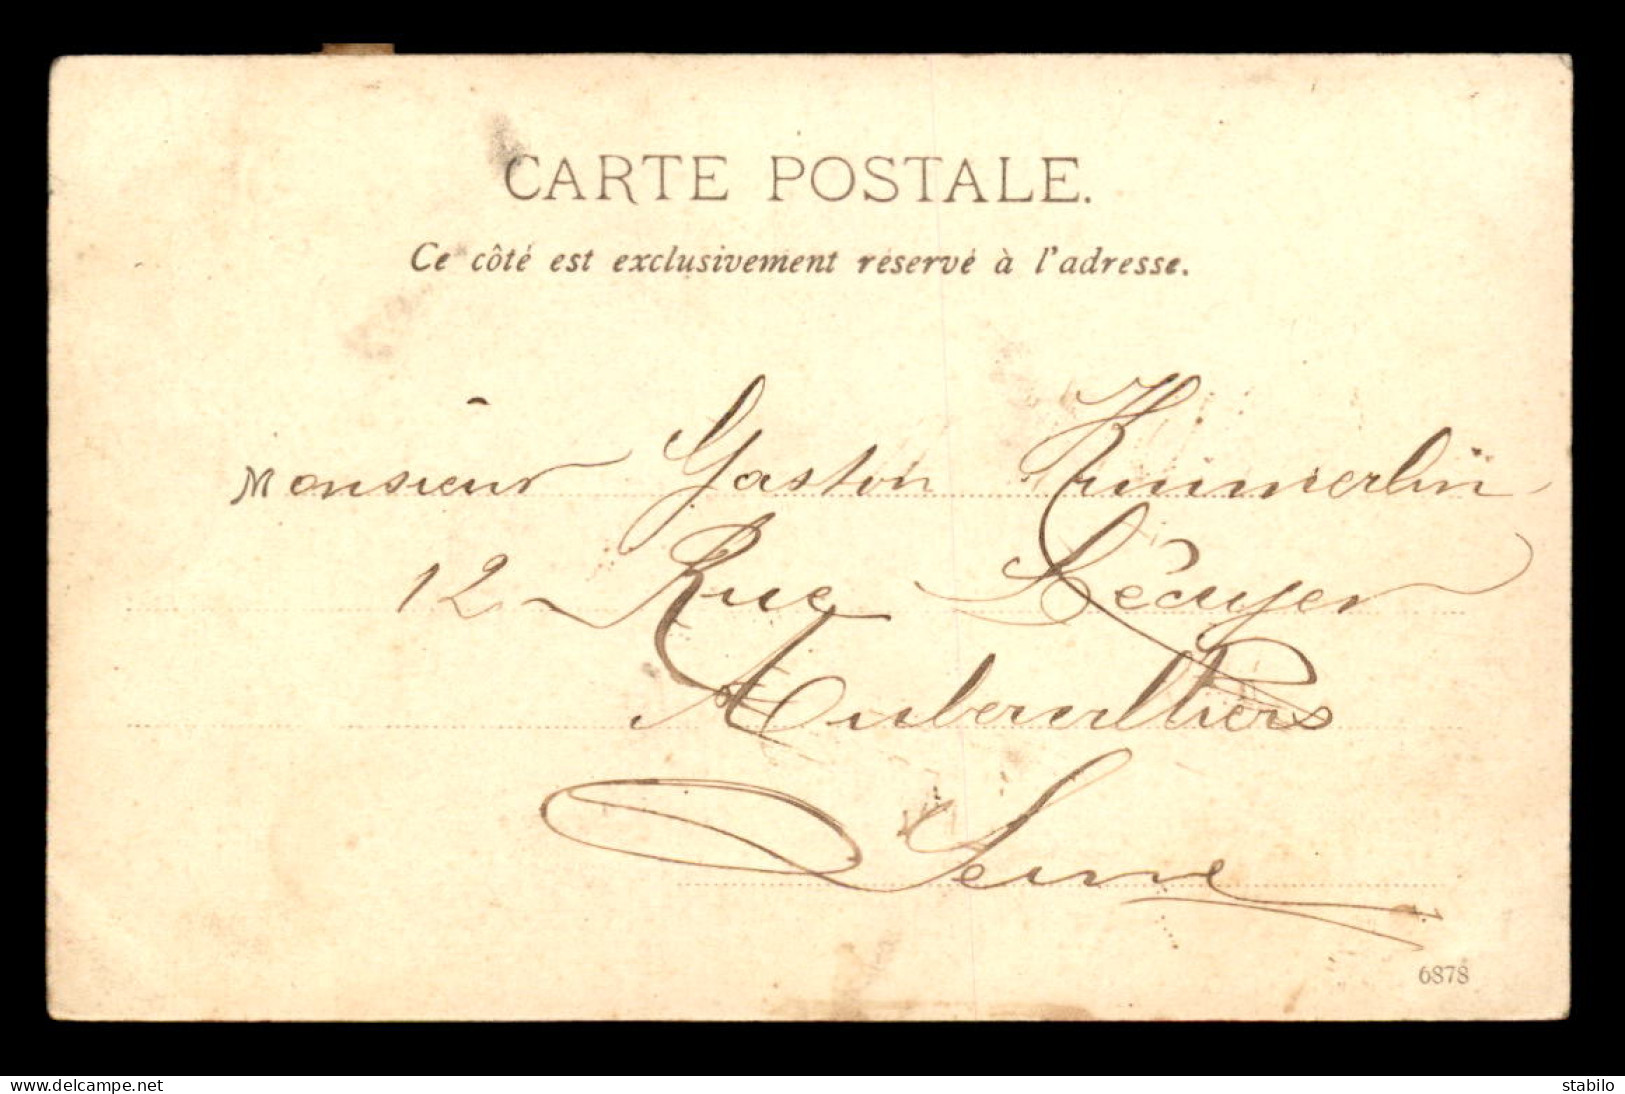 CARTE POSTALE.
Ce côté est exclusivement réservé à l'adresse.
Monsieur Gaston Krummerlin
12 Rue Lécuyer
Aubervilliers
Seine
6878
www.delcampe.net
stabilo